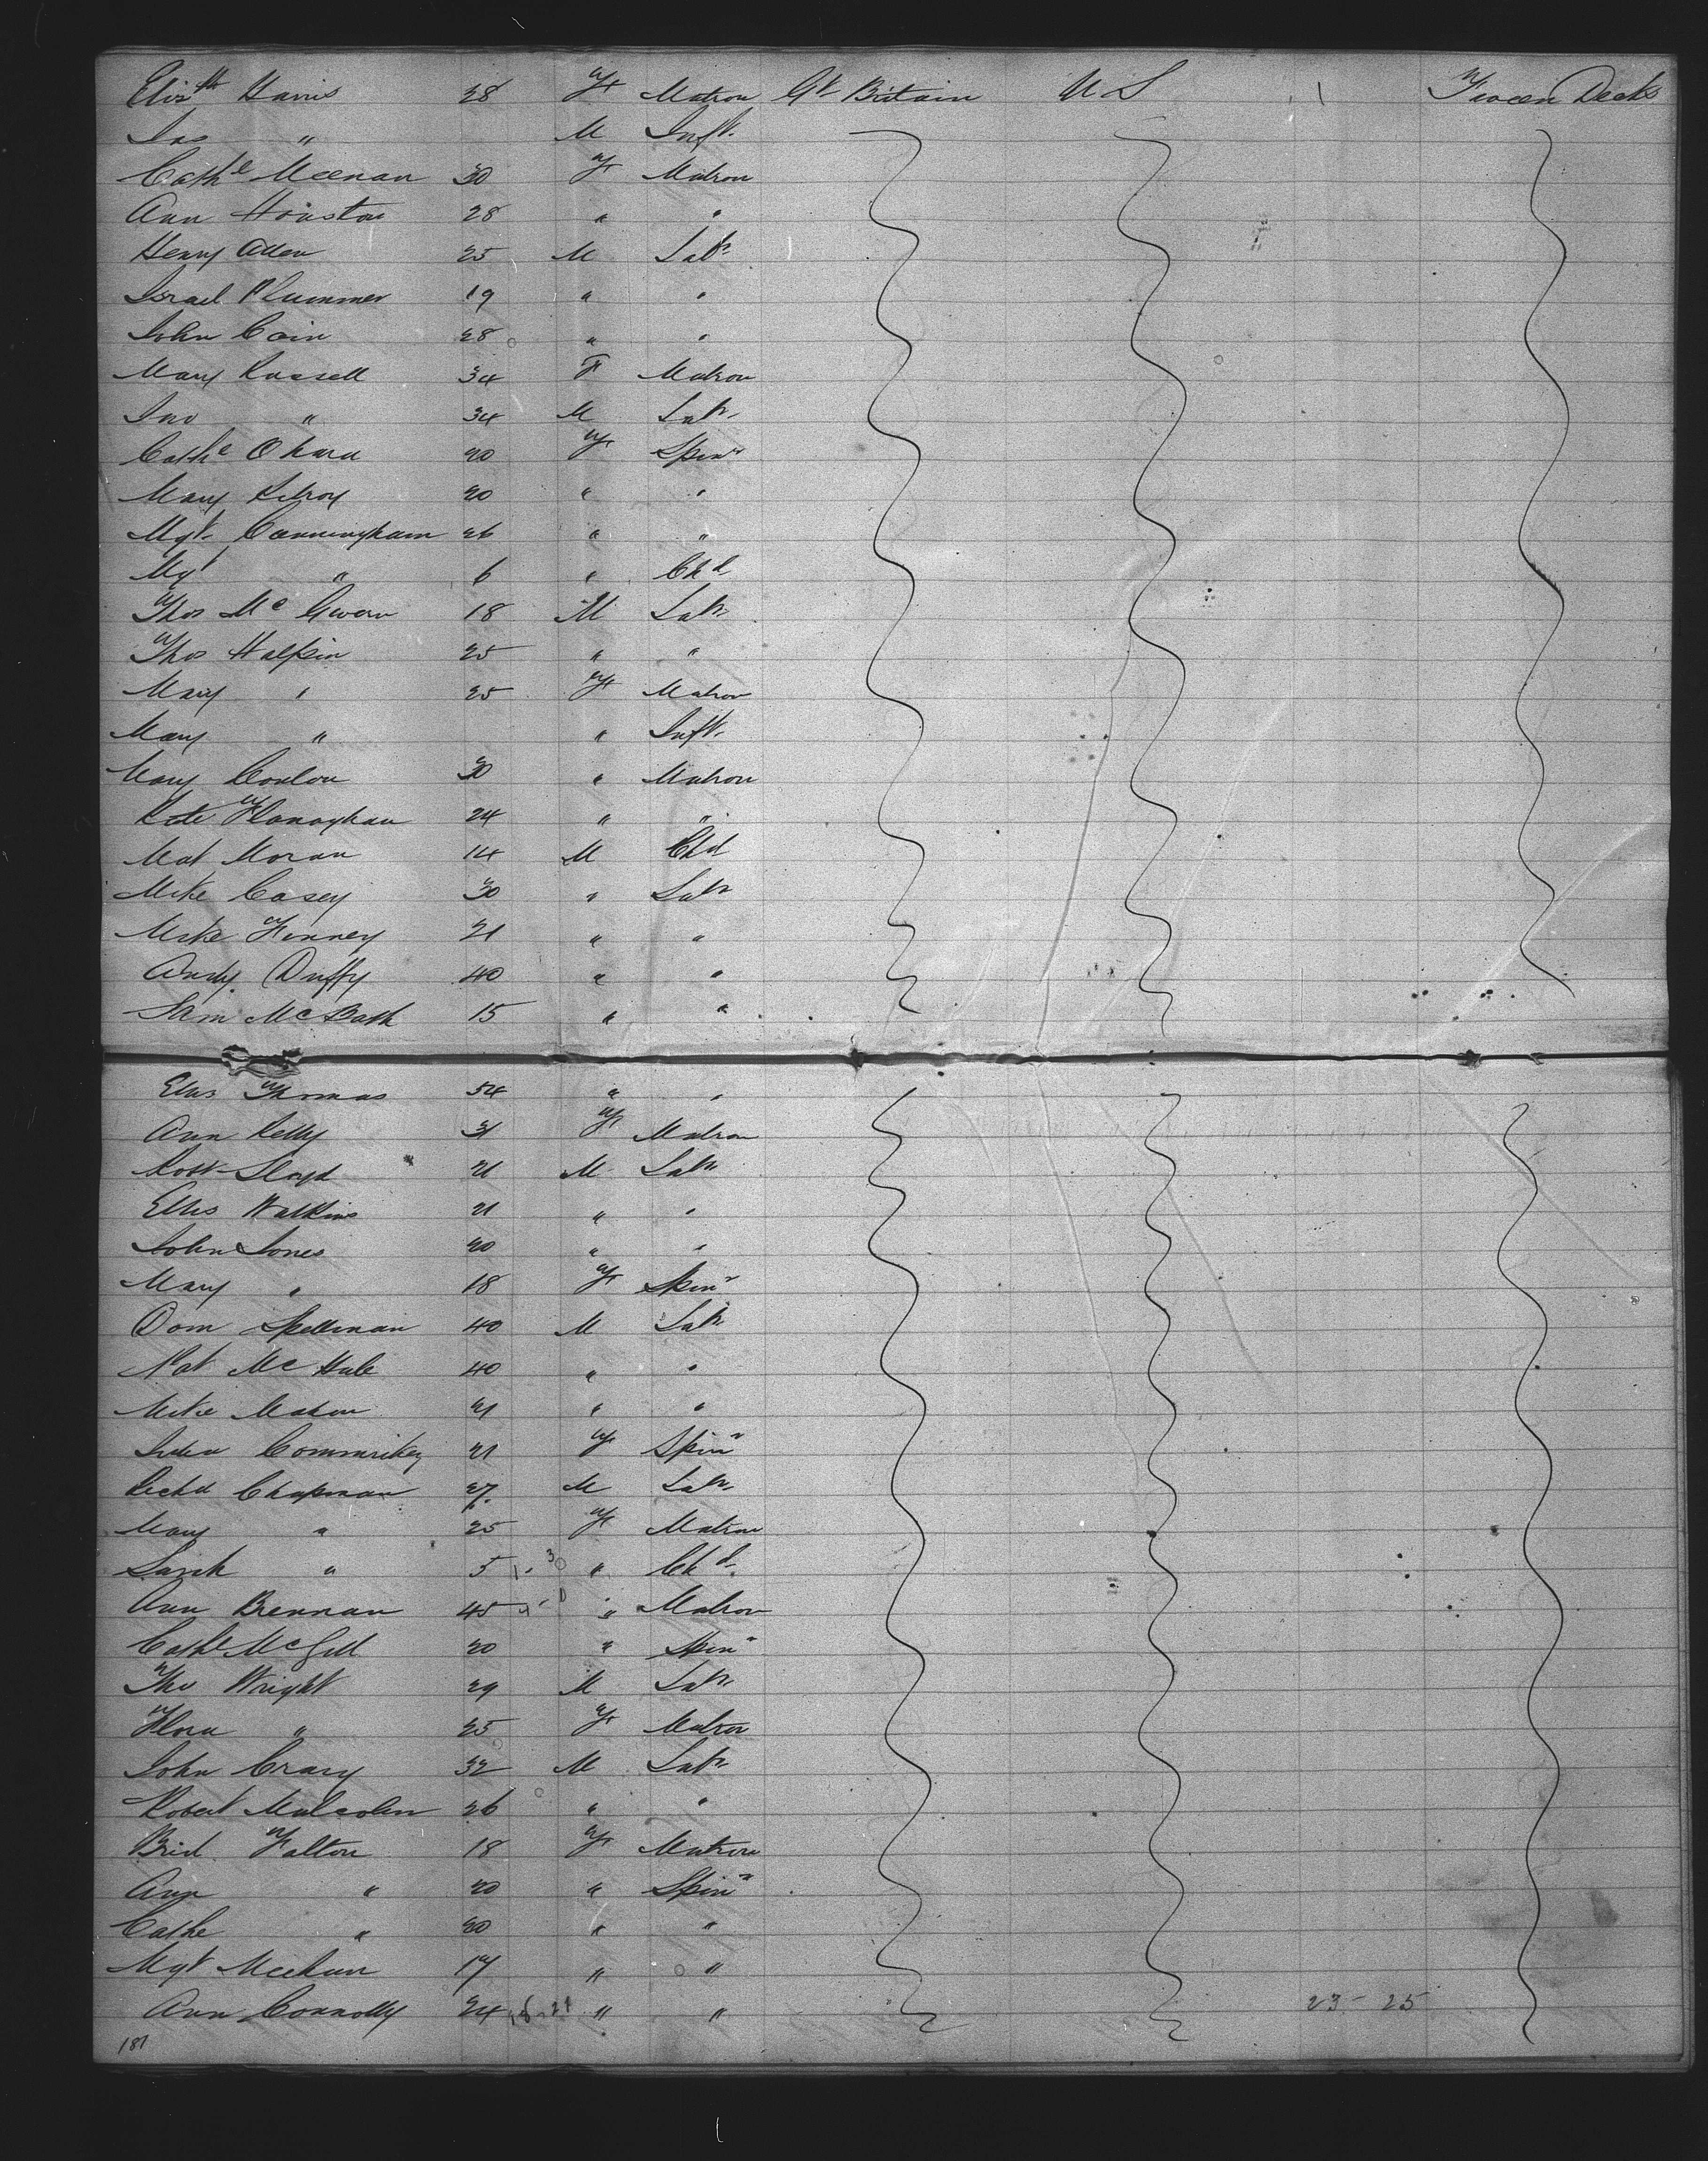 Elizth Harris 28 F Matron Gt Britain U S Tween Decks
Jas " M Inft.
Cathe Meenan 30 F Matron
Ann Houston 28 " "
Henry Allen 25 M Labr
Israel Plummer 19 " "
John Cain 28 " "
Mary Russell 34 F Matron
Jno " 34 M Labr
Cathe O hara 20 F Spinr
Mary Kilroy 20 " "
Mgt. Cunningham 26 " "
Mgt " 6 " Chd
Thos Mc Gwern 18 M Labr
Thos Halpin 25 " "
Mary " 25 F Matron
Mary " " Inft.
Mary Conlon 30 " Matron
Kate Flanaghan 24 " "
Mat Moran 14 M Chd
Mike Casey 30 " Labr
Mike Finney 21 " "
Andy Duffy 40 " "
Sam McBath 15 " "
Elias Thomas 54 " "
Ann Kelly 31 F Matron
Robt Lloyd 21 M Labr
Elias Watkins 21 " "
John Jones 20 " "
Mary " 18 F Spinr
Dom Spellman 40 M Labr
Pat Mc Hale 40 " "
Mike 21 " "
21 F Spinr
Richd Chapman 27 M Labr
Mary " 25 F Matron
Sarah " 5 " Chd.
Ann Brennan 45 " Matron
Cathe McGill 20 " Spinr
Tho Wright 29 M Labr
Flora " 25 F Matron
John Crary 32 M Labr
Robert Malcolm 26 " "
Brid Falton 18 F Matron
Ann " 20 " Spinr
Cathe " 20 " "
Mgt Meehan 17 " "
Ann Connolly 24 " " 23 - 25
187